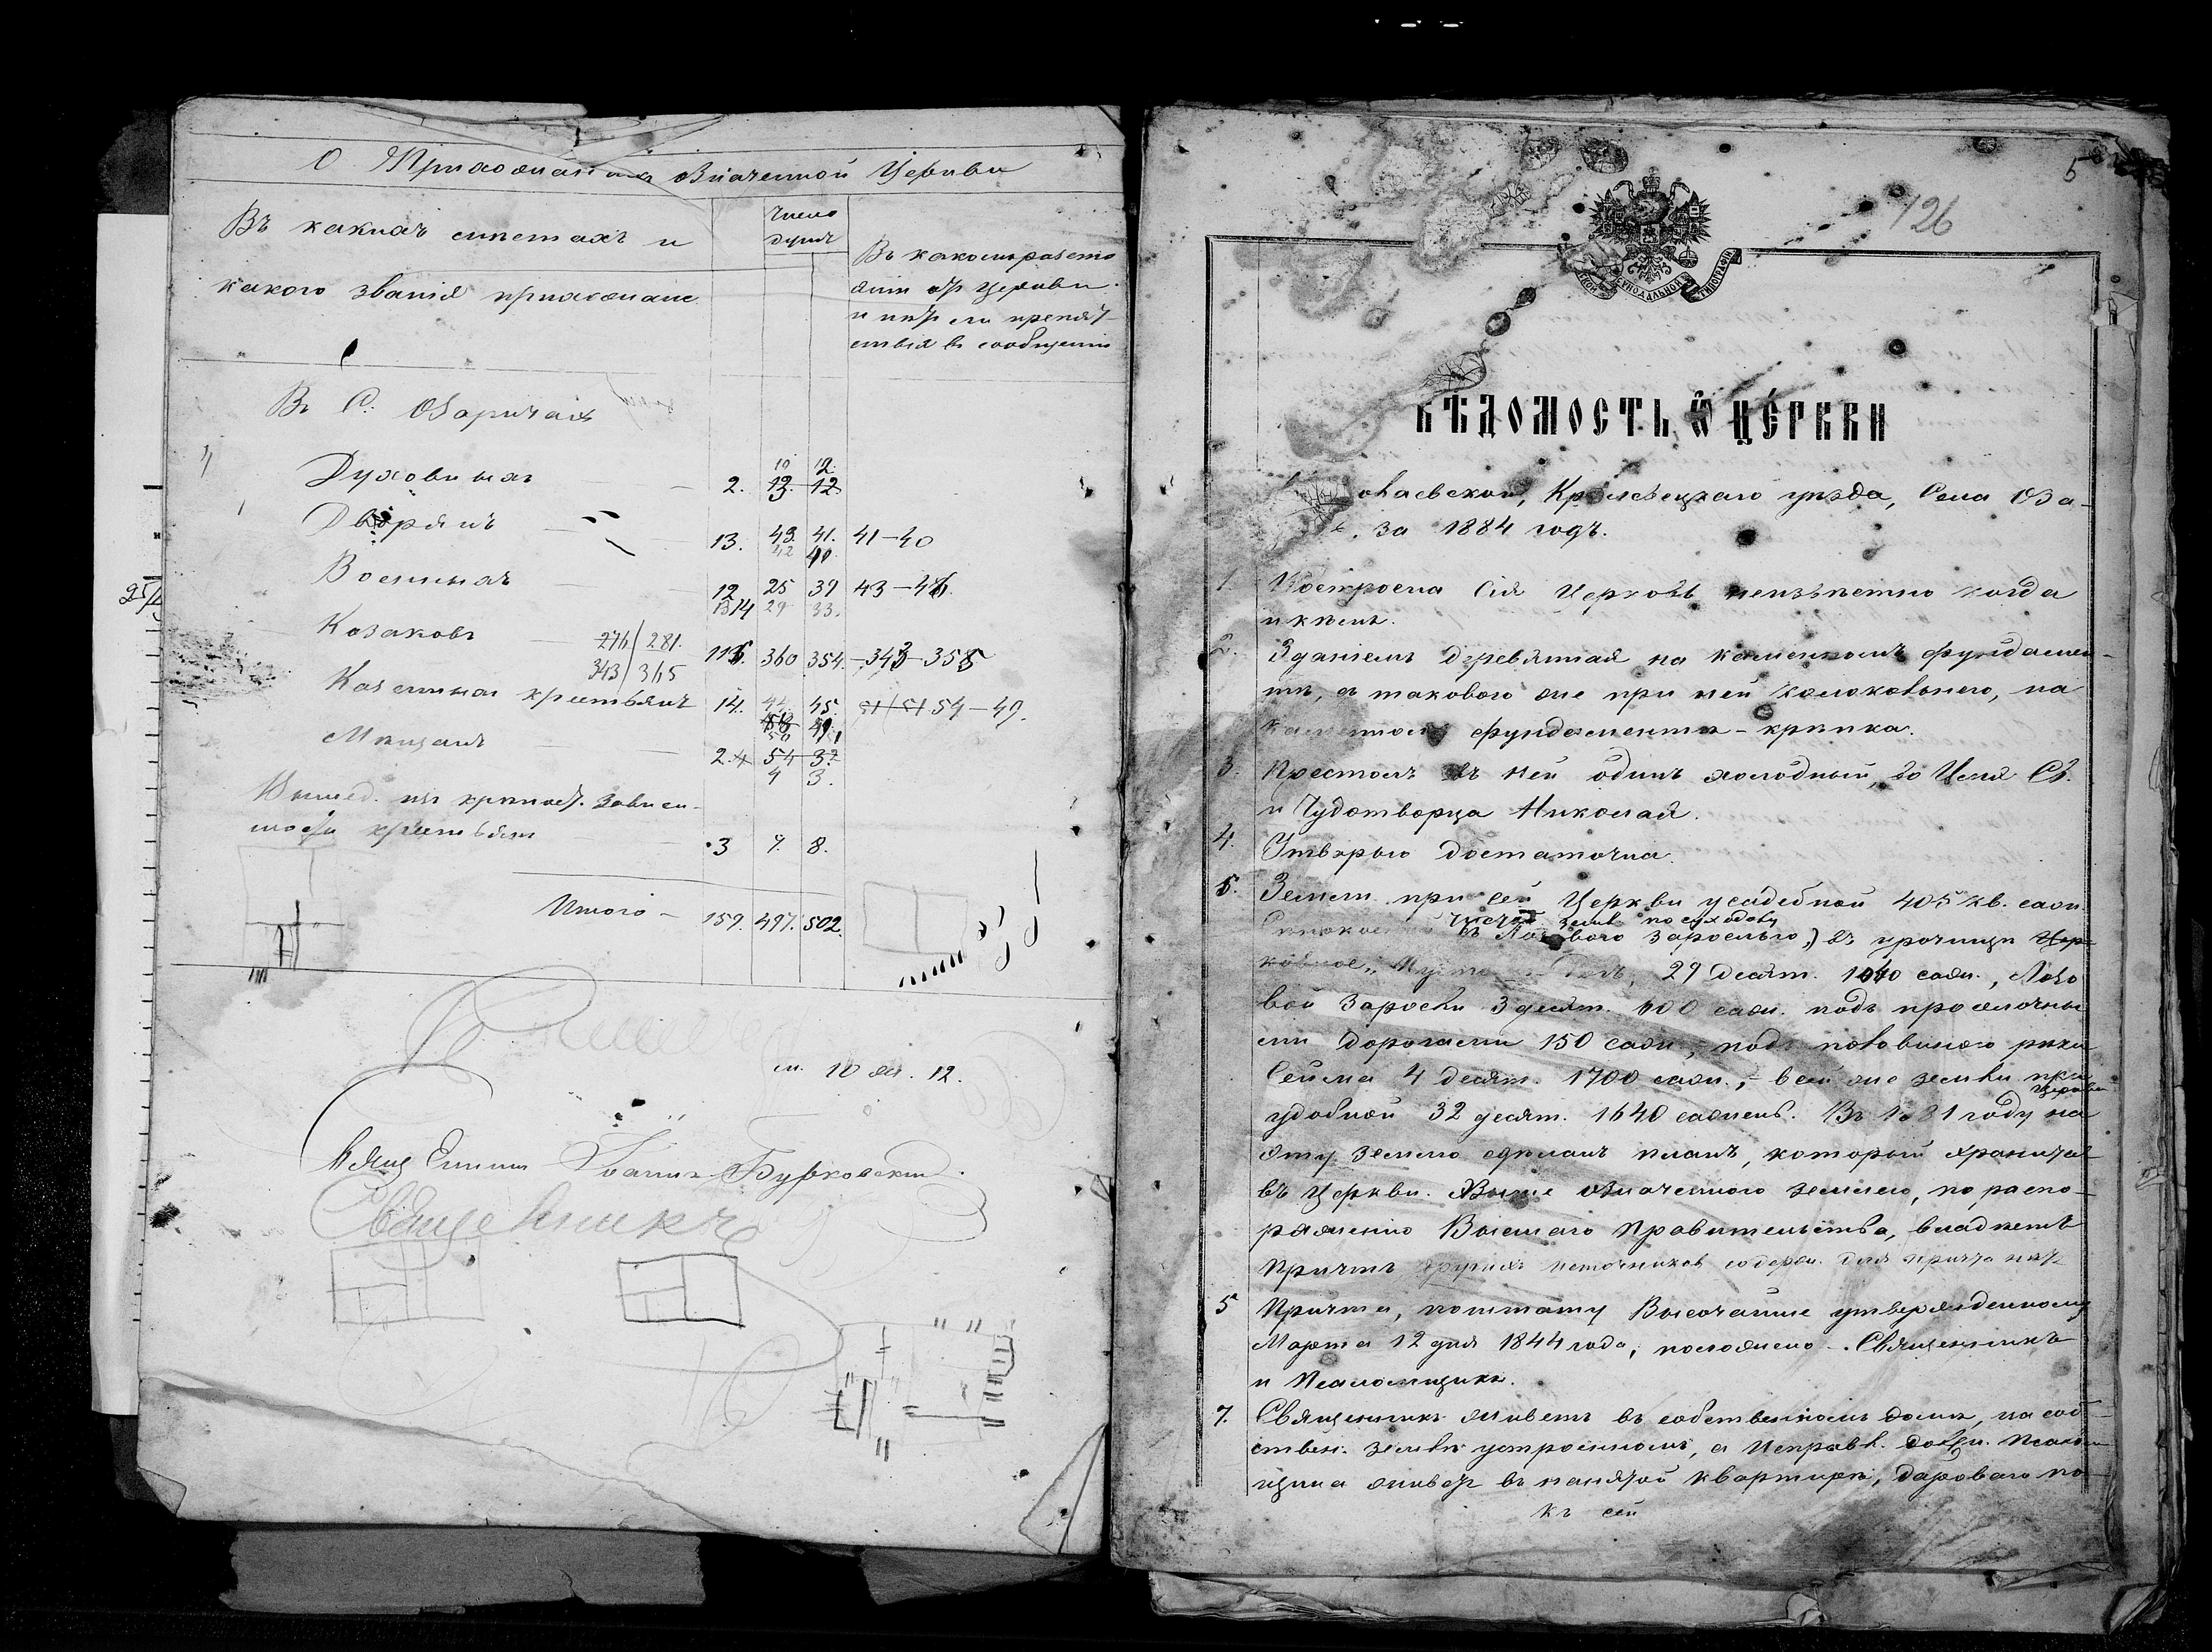 О Прихожанахъ означенной Церкви
Въ какихъ мѣстахъ и
какого званія прихожане
Число
душъ
Въ какомъ разсто
яніи отъ церкви
и нѣтъ ли препят-
ствія въ сообщеніи
Въ С. Озаричахъ
10 12.
Духовныхъ 2. 13. 12
Дворянъ 13. 49. 41. 41-40
42 40.
Военныхъ 12 25 39 43-46.
14 29 33.
Козаковъ 276/281. 116. 360 354. 343-358
343/365
Казенныхъ крестьянъ 14. 44. 45. 51/51 54-49.
50
Мѣщанъ 2. 4 54 37
4 3.
Вышед. изъ крѣпост. зависи-
мости крестьянъ 3 9. 8.
Итого - 159. 497. 502.
м. 10 ж. 12.
Священникъ Іоаннъ Бутковскій.
Священникъ
5
126
СУНОДАЛЬНОЙ ТИПОГРАФІИ
ВѢДОМОСТЬ Ѽ ЦЕ́РКВИ
Кролевецкаго уѣзда, Села Оза-
за 1884 годъ.
1. Построена сія Церковь неизвѣстно когда
и кѣмъ.
2. Зданіемъ деревянная на каменномъ фундамен-
тѣ, съ таковою же при ней колокольнею, на
каменномъ фундаментѣ - крѣпка.
3. Престолъ въ ней одинъ холодный, во Имя Св.
и Чудотворца Николая.
4. Утварью достаточна.
5. Земли при сей Церкви усадебной 405 кв. саж.
земл по суходолу
зарослью,) въ урочищѣ Цер-
ковное„ 29 десят. 1040 саж., Лозо
вой заросли 3 десят. 600 саж. подъ проселочны
ми дорогами 150 саж., подъ половиною рѣки
Сейма 4 десят. 1700 саж., - всей же земли при
Церкви
удобной 32 десят. 1640 сажень. Въ 1881 году на
эту землю сдѣланъ планъ, который хранится
въ Церкви. Выше означенною землею, по распо-
ряженію Высшаго Правительства, владѣетъ
Причтъ, другихъ источниковъ содерж. для причта нѣтъ
5 Причта, по штату Высочайше утвержденному
Марта 12 дня 1844 года, положено - Священникъ
и Псаломщикъ.
7. Священникъ живетъ въ собственномъ домѣ, на соб-
ствен. землѣ устроенномъ, а Исправл. должн. Псалом
щика живетъ въ нанятой квартирѣ, даровою по-
къ сей